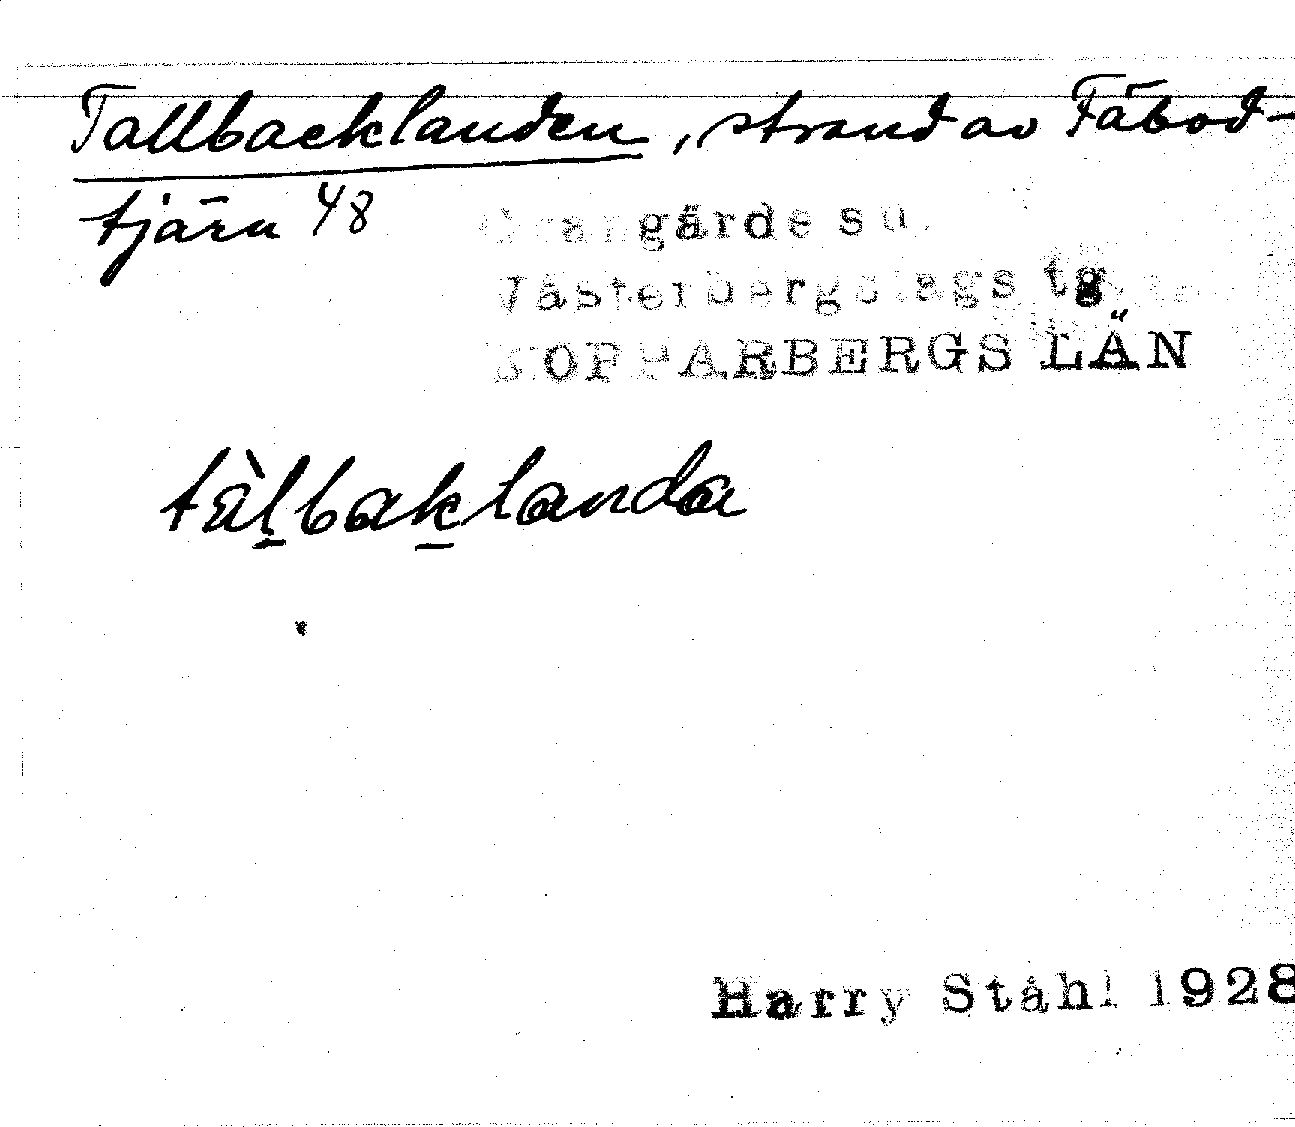 Tallbacklanden, strand av Fäbod-
tjärn 48
Grangärde sn.
Västerbergslags tg
KOPPARBERGS LÄN
tàl̠bak̠landa
Harry Ståhl 1928